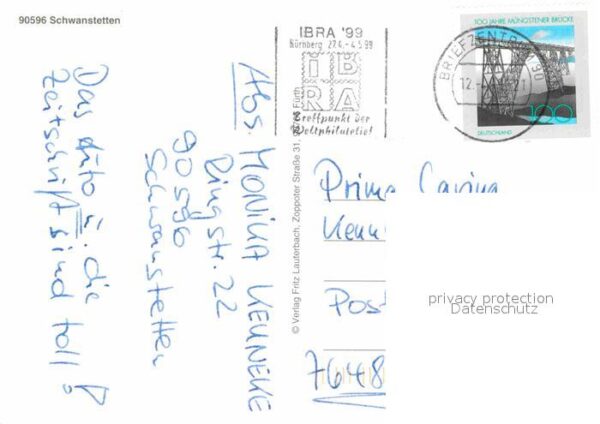 90596 Schwanstetten
IBRA '99
Nürnberg 27.4. - 4.5.99
IB
RA
Treffpunkt der
Weltphilatelie!
100 JAHRE MÜNGSTENER BRÜCKE
BRIEFZENTRUM 90
12.
100
DEUTSCHLAND
Das
die
Zeitschrift sind toll!
Abs. MONIKA KENNEKE
Ringstr. 22
90596
Schwanstetten
© Verlag Fritz Lauterbach, Zoppoter Straße 31, Fürth
Prima Carina
Kenn
Post
7648
privacy protection
Datenschutz